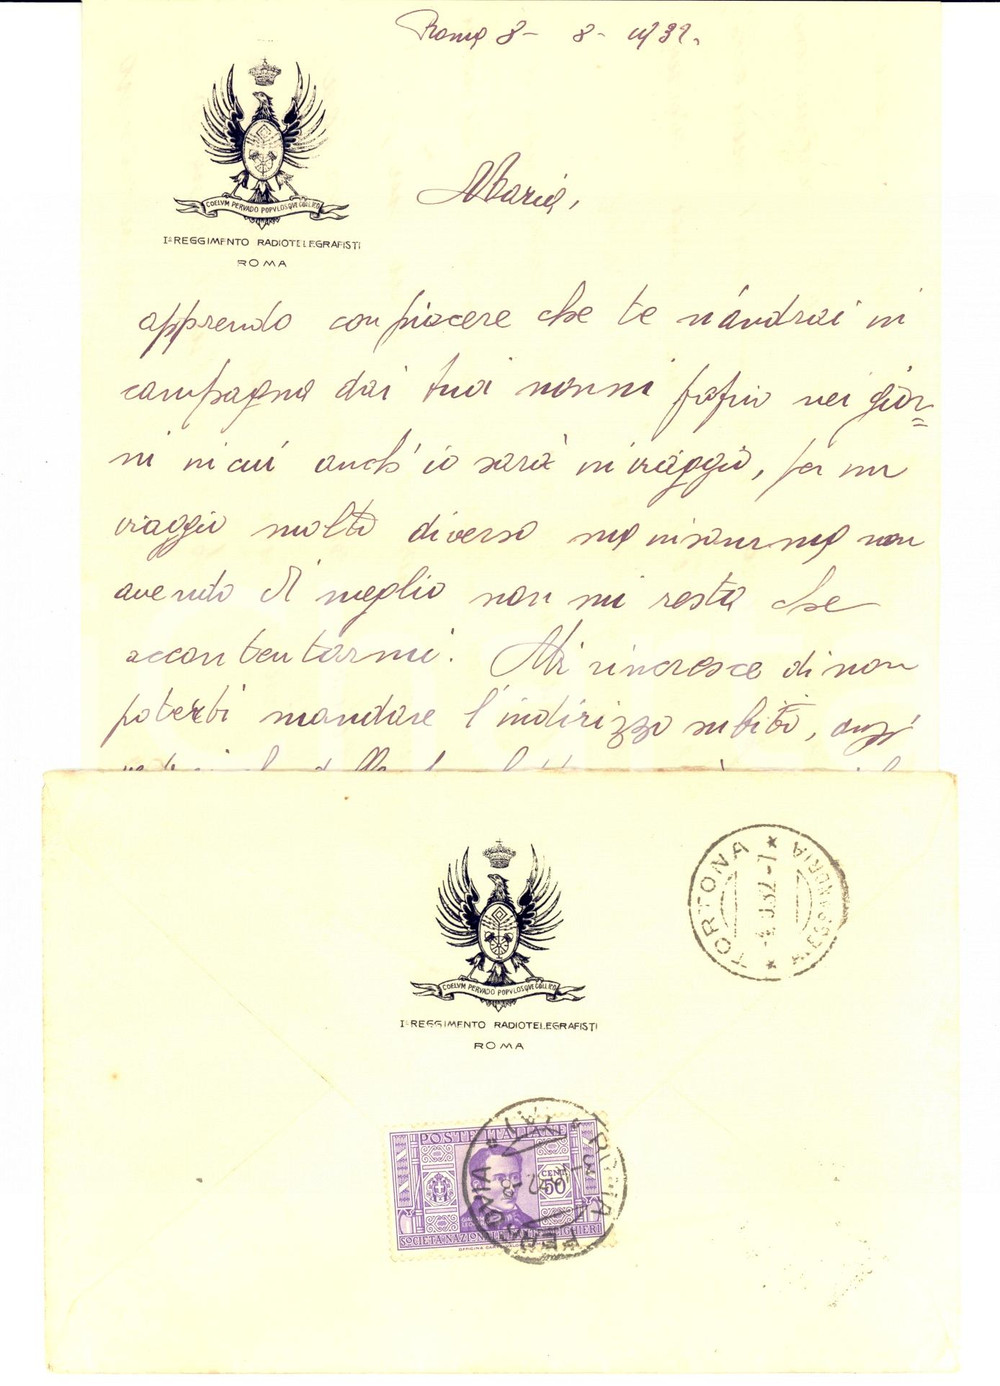 Roma 8 - 8 - 1932.
COELVM PERVADO POPVLOSQVE COLLIGO
Iº REGGIMENTO RADIOTELEGRAFISTI
ROMA
Maria,
apprendo con piacere che te n'andrai in
campagna dai tuoi nonni proprio nei gior=
ni in cui anch'io sarò in viaggio, per un
viaggio molto diverso ma insomma non
avendo di meglio non mi resta che
accontentarmi. Mi rincresce di non
poterti mandare l'indirizzo subito, anzi
TORTONA
ALESSANDRIA
COELVM PERVADO POPVLOSQVE COLLIGO
Iº REGGIMENTO RADIOTELEGRAFISTI
ROMA
POSTE ITALIANE
CENT
50
SOCIETÀ NAZIONALE DANTE ALIGHIERI
ROMA FERROVIA